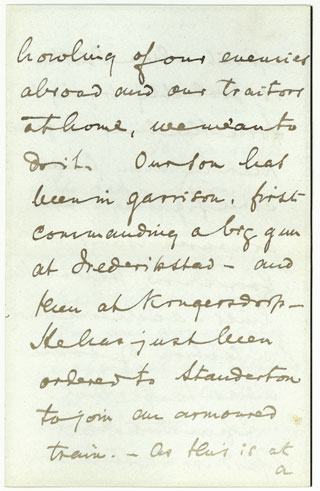 howling of our enemies
abroad and our traitors
at home, we mean to
do it. Our son has
been in garrison, first
commanding a big gun
at Frederikstad - and
then at Krugersdorp -
He has just been
ordered to Standerton
to join an armoured
train. - As this is at
a